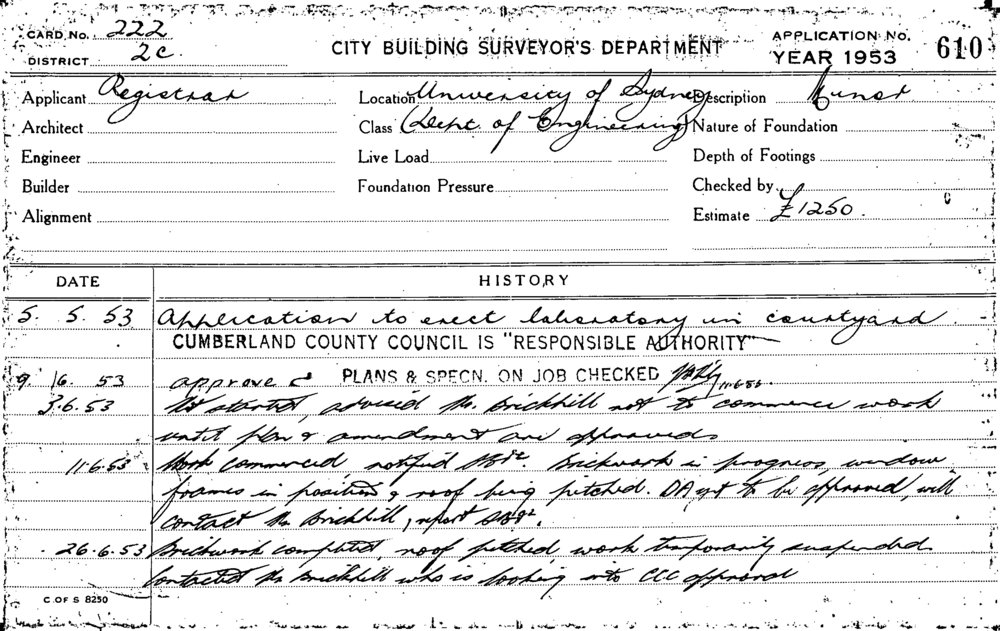 CARD No. 222
DISTRICT 2c
CITY BUILDING SURVEYOR'S DEPARTMENT
APPLICATION No.
YEAR 1953
610
Applicant Registrar Location University of Sydney Description Minor
Architect Class (Dept. of Engineering) Nature of Foundation
Engineer Live Load Depth of Footings
Builder Foundation Pressure Checked by
Alignment Estimate £1250.
DATE HISTORY
5. 5. 53 Application to erect laboratory in courtyard.
CUMBERLAND COUNTY COUNCIL IS "RESPONSIBLE AUTHORITY"
9. 6. 53 approved PLANS & SPECN. ON JOB CHECKED 11.6.53.
3.6.53 Not started, advised Mr. Brickhill not to commence work
until plan & amendment are approved
11.6.53 Work commenced notified. Brickwork in progress, window
frames in position & roof being pitched. DA yet to be approved, will
contact Mr Brickhill, report
26.6.53 Brickwork completed, roof pitched, work temporarily suspended.
Contacted Mr Brickhill who is looking into CCC approval
C. OF S 8250